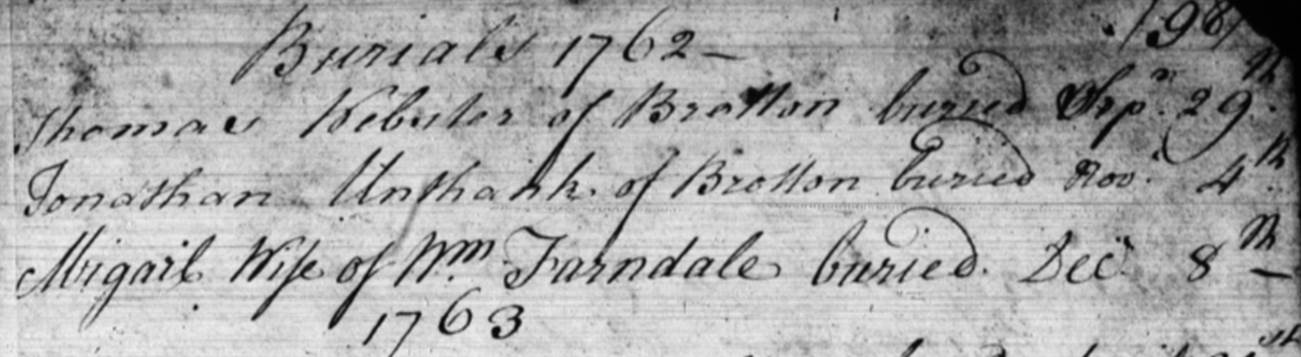 Burials 1762 - 198
Thomas Webster of Brotton buried Sep.r 29th.
Jonathan Unthank of Brotton buried Nov.r 4th.
Abigail Wife of Wm. Farndale buried Decr. 8th -
1763